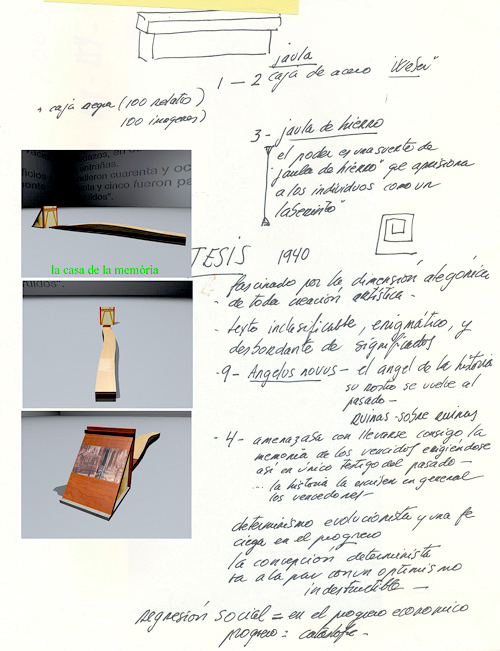 jaula
1 - 2 caja de acero "Weber"
caja negra (100 relatos)
100 imagenes)
3 - jaula de hierro
el poder es una suerte de
"jaula de hierro" qe aprisiona
a los individuos como un
laberinto"
entrañas.
cuarenta y oc
y cinco fueron pa
la casa de la memòria
TESIS 1940
fascinado por la dimensión alegórica
de toda creación artística.
- texto inclasificable, enigmático, y
desbordante de significados
9 - Angelus novus - el angel de la historia
su rostro se vuelve al
pasado -
RUINAS - SOBRE RUINAS
- 4 - amenazasa con llevarse consigo la
memoria de los vencidos erigiéndose
asi en único testigo del pasado -
... la historia la escriben en general
los vencedores -
determinismo evolucionista y una fe
ciega en el progreso
la concepción determinista
va a la par con un optimismo
indestructible -
REGRESIÓN SOCIAL = en el progreso economico
progreso = catastofe -